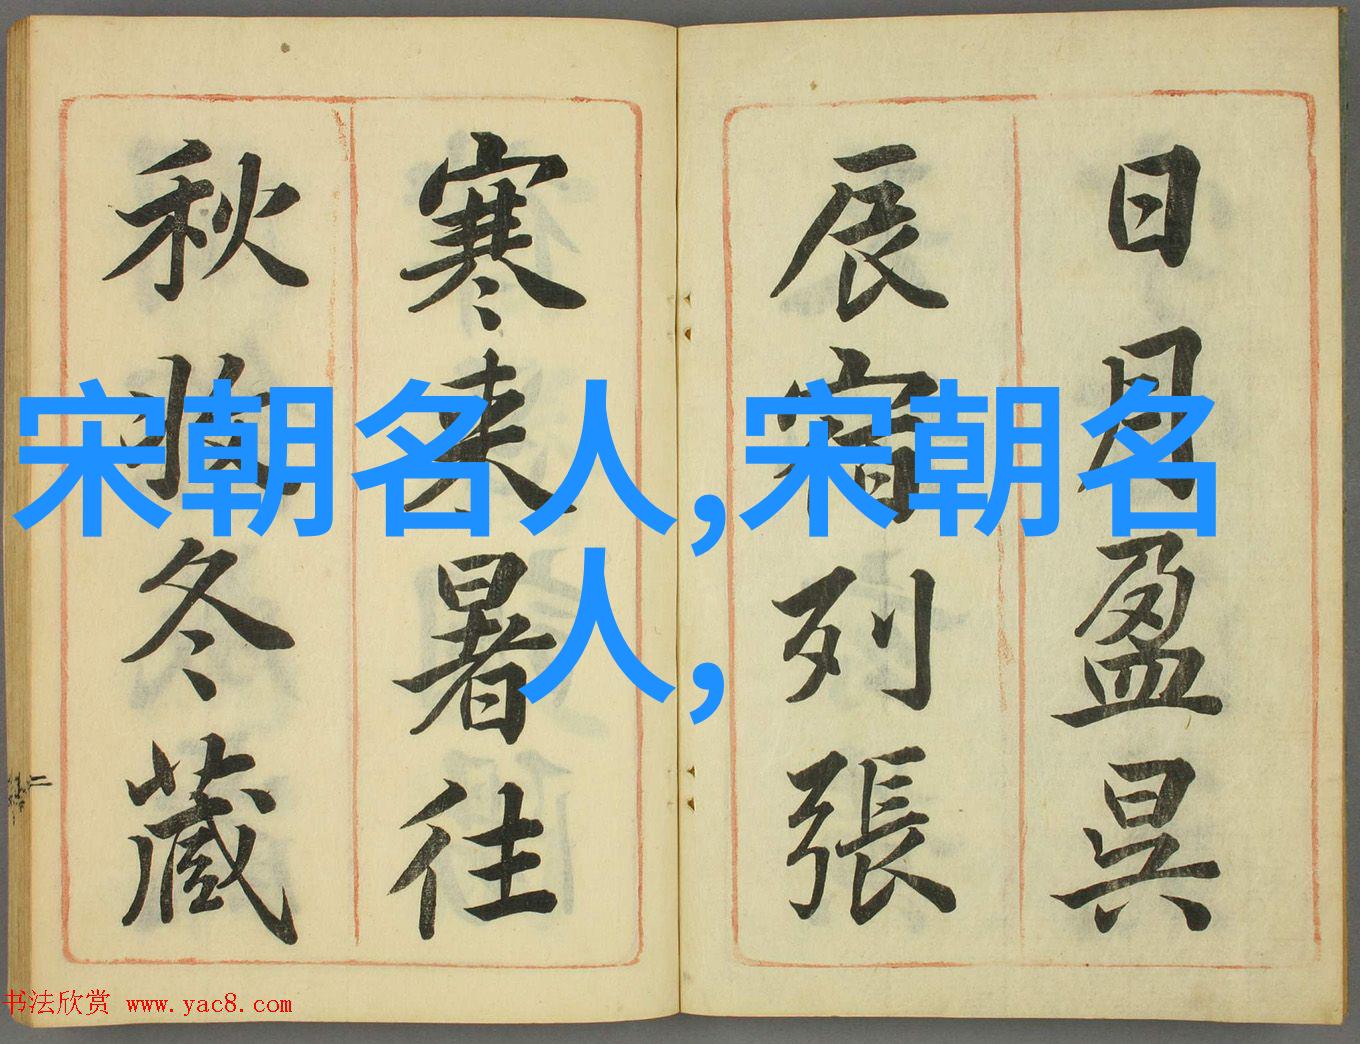 日月盈昃
辰宿列張
寒来暑往
秋收冬藏
宋朝名人,宋朝名
人,
书法欣赏 www.yac8.com